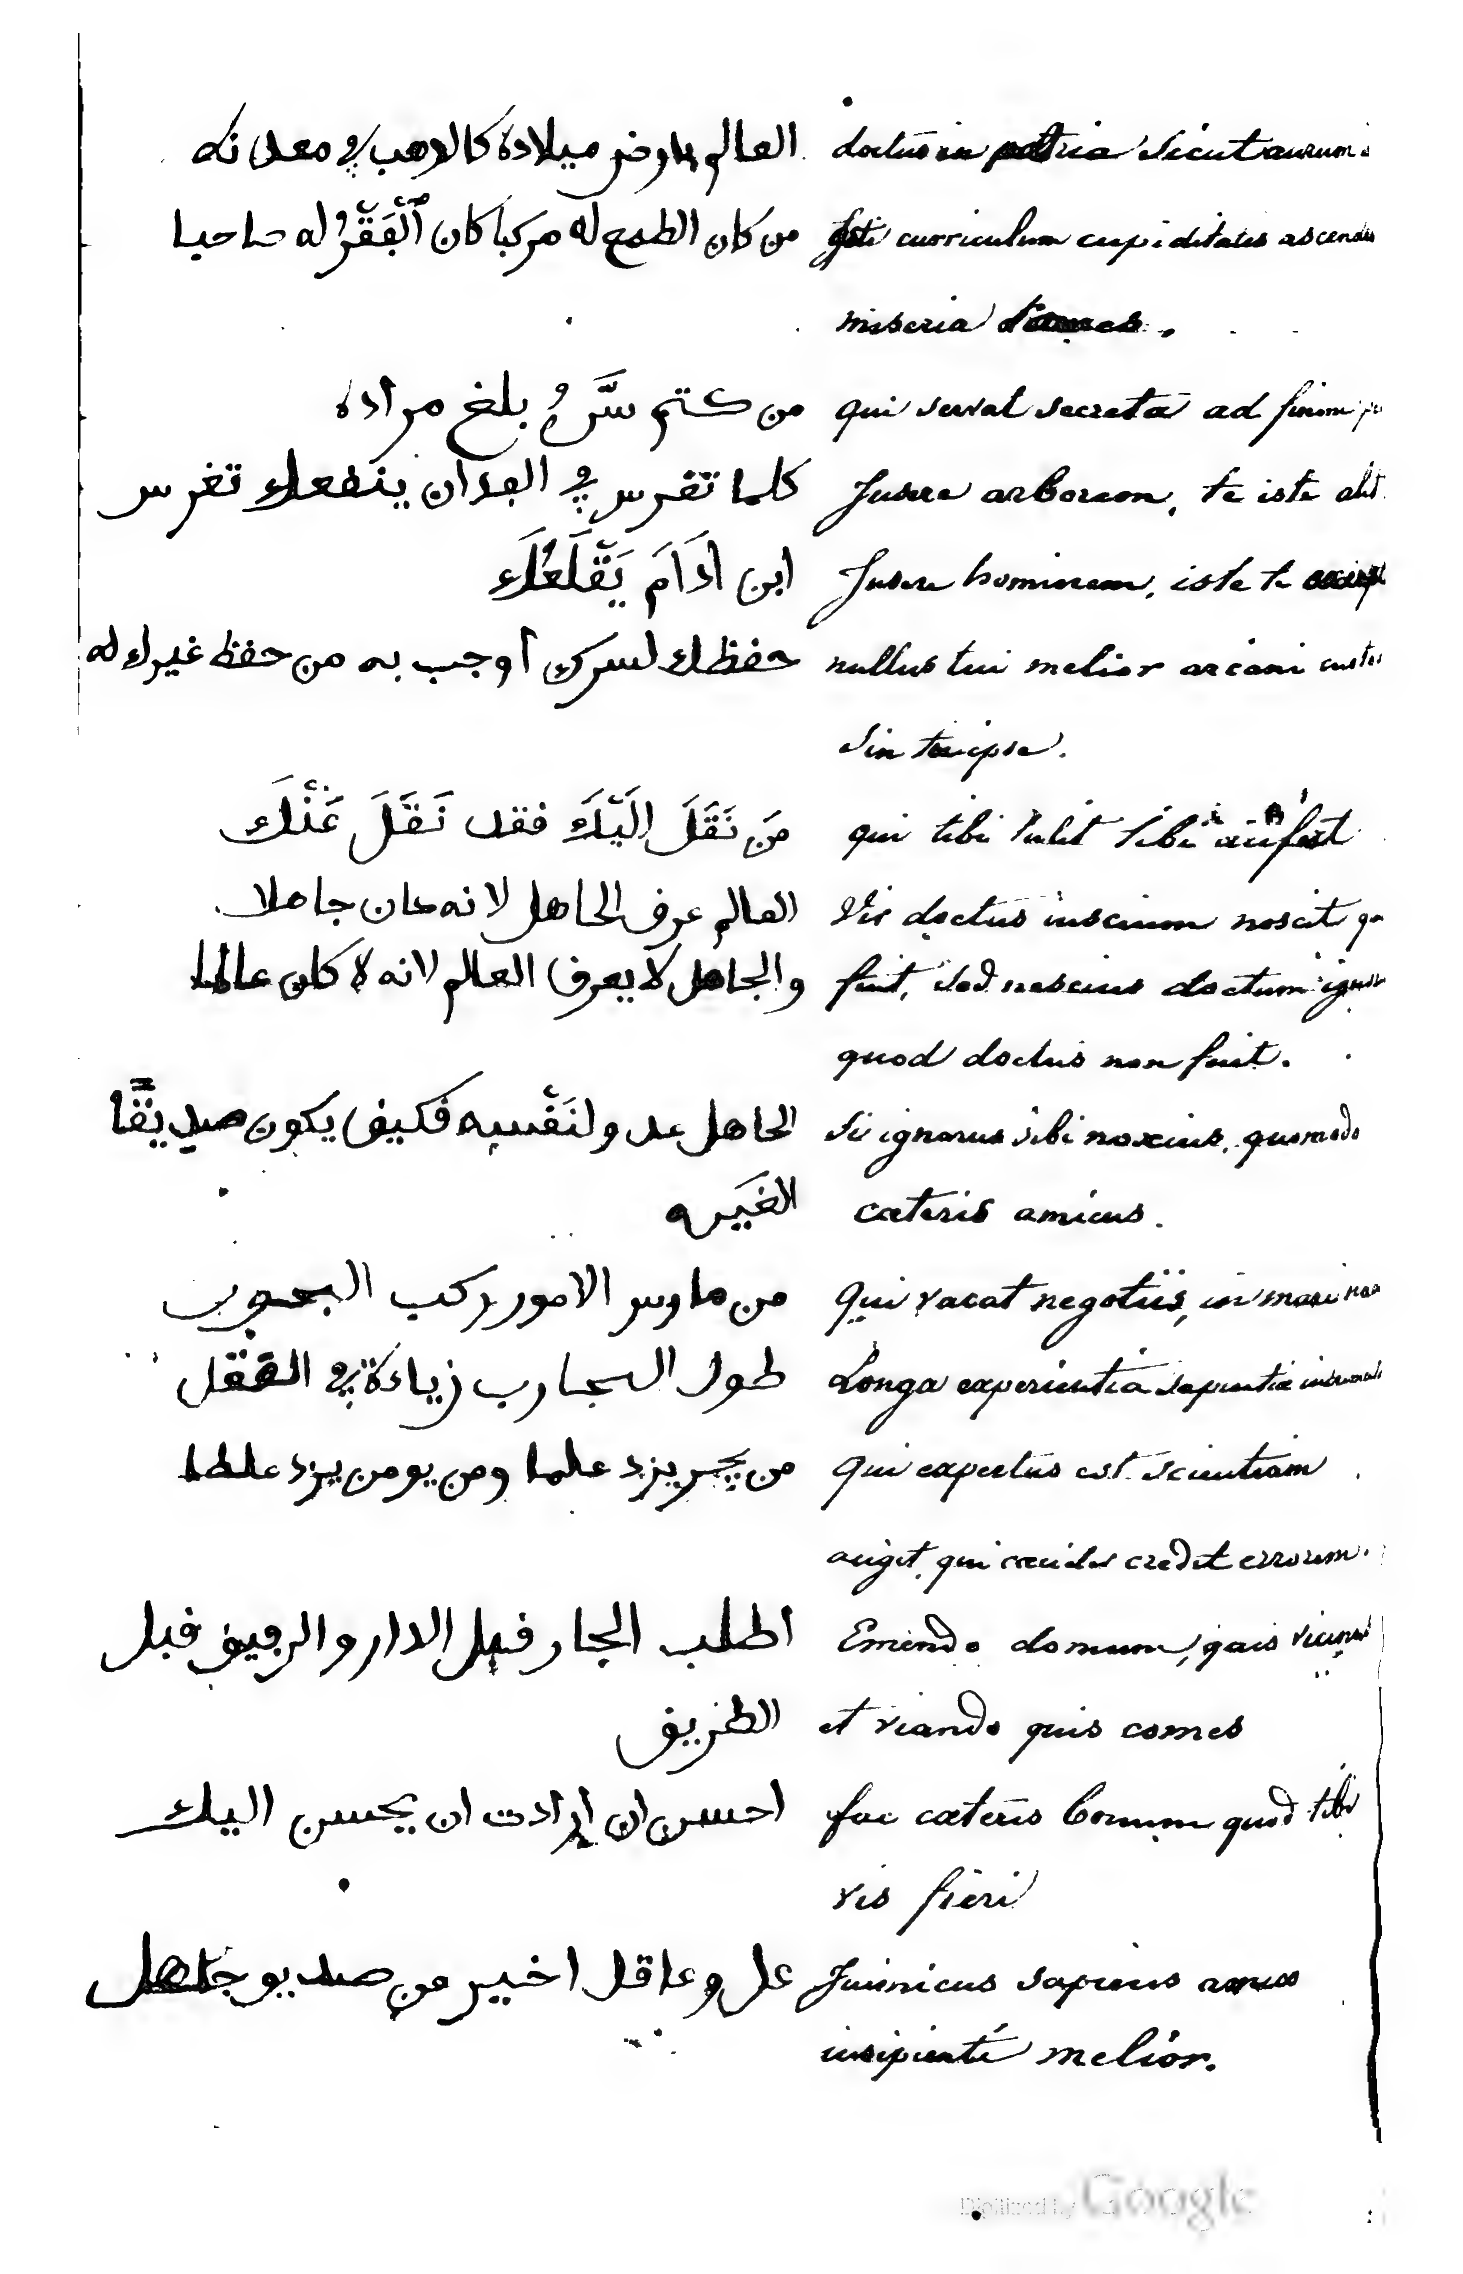 العالم بارض ميلاده كالدهب في معدانه doctus in patria sicut aurum
من كان الطمع له مركبا كان ٱلْفَقْرُ له صاحبا curriculum cupiditatis
miseria
من كتم سَّرهُ بلغ مرأده qui servat secreta ad finem
كلما تغرس في الفدان ينفعك تغرس Insere arborem, te iste alit
ابن اَدَامَ يَقْلَعُكَ Insere hominem, iste te
حفظك لسرك أوجب به من حفظ غيرك له nullus tui melior arcani
sin tu ipse.
مَن نَقَلَ اِلَيْكَ فقد نَقَلَ عَنْكَ qui tibi tulit tibi aufert
العالم عرف الجاهل لانه كان جاهلا Vir doctus inscium noscit
والجاهل لا يعرف العالم لانه لا كان عالما fuit, sed nescius doctum
quod doctus non fuit.
الجاهل عدو لنَفْسه فكيف يكون صديقًا Si ignarus sibi noxius, quomodo
الغَيره cæteris amicus.
من مارس الامور ركب البحور Qui vacat negotiis, in mari
طول التجارب زيادة في العقل Longa experientia sapientiæ
من يجر يزد علما ومن يومن يزد غلطا Qui expertus est scientiam
auget, qui credit errorem.
اطلب الجار فبل الدار والرفيق فبل Emendo domum, quis vicinus
الطريق et viando quis comes
احسن ان اردت ان يحسن اليك fac cæteris bonum quod tibi
vis fieri
عدو عاقل اخير من صديق جاهل Inimicus sapiens
insipiente melior.
Digitized by Google